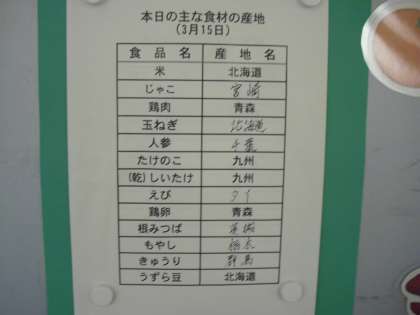 本日の主な食材の産地
(3月15日)
食品名 産地名
米 北海道
じゃこ 宮崎
鶏肉 青森
玉ねぎ 北海道
人参 千葉
たけのこ 九州
(乾)しいたけ 九州
えび タイ
鶏卵 青森
根みつば 茨城
もやし 栃木
きゅうり 群馬
うずら豆 北海道